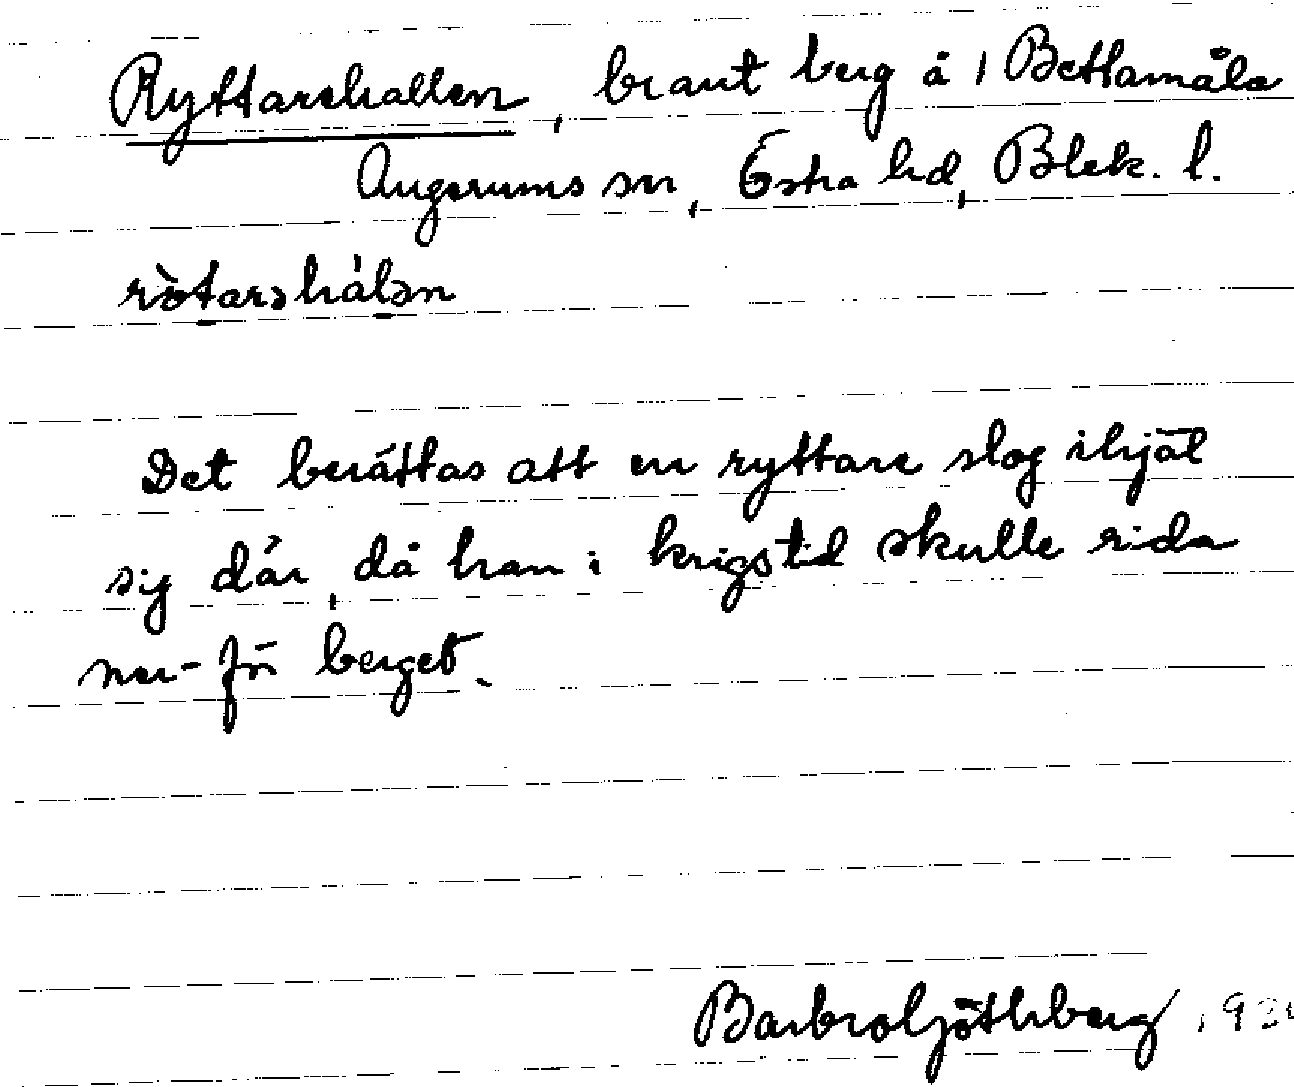 Ryttarehallen, brant berg å 1 Bettamåla
Augerums sn, Östra hd, Blek. l.
Det berättas att en ryttare slog ihjäl
sig där, då han i krigstid skulle rida
ner-för berget.
Barbro